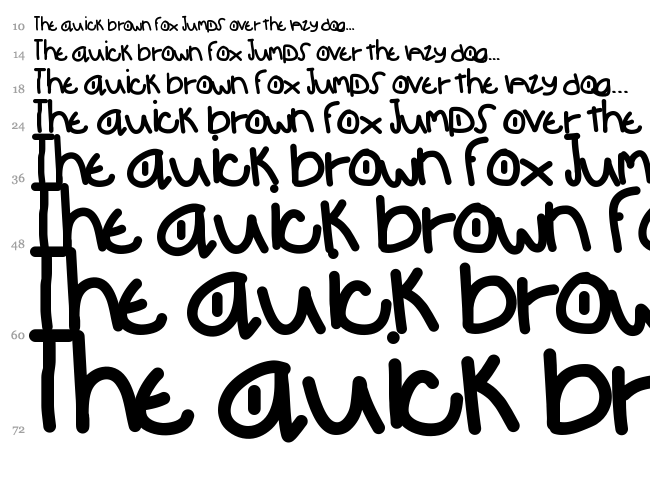 10 The quick brown fox Jumps over the lazy dog...
14 The quick brown fox Jumps over the lazy dog...
18 The quick brown fox Jumps over the lazy dog...
24 The quick brown fox Jumps over the
36 The quick brown fox Jum
48 The quick brown fo
60 The quick brow
72 The quick br